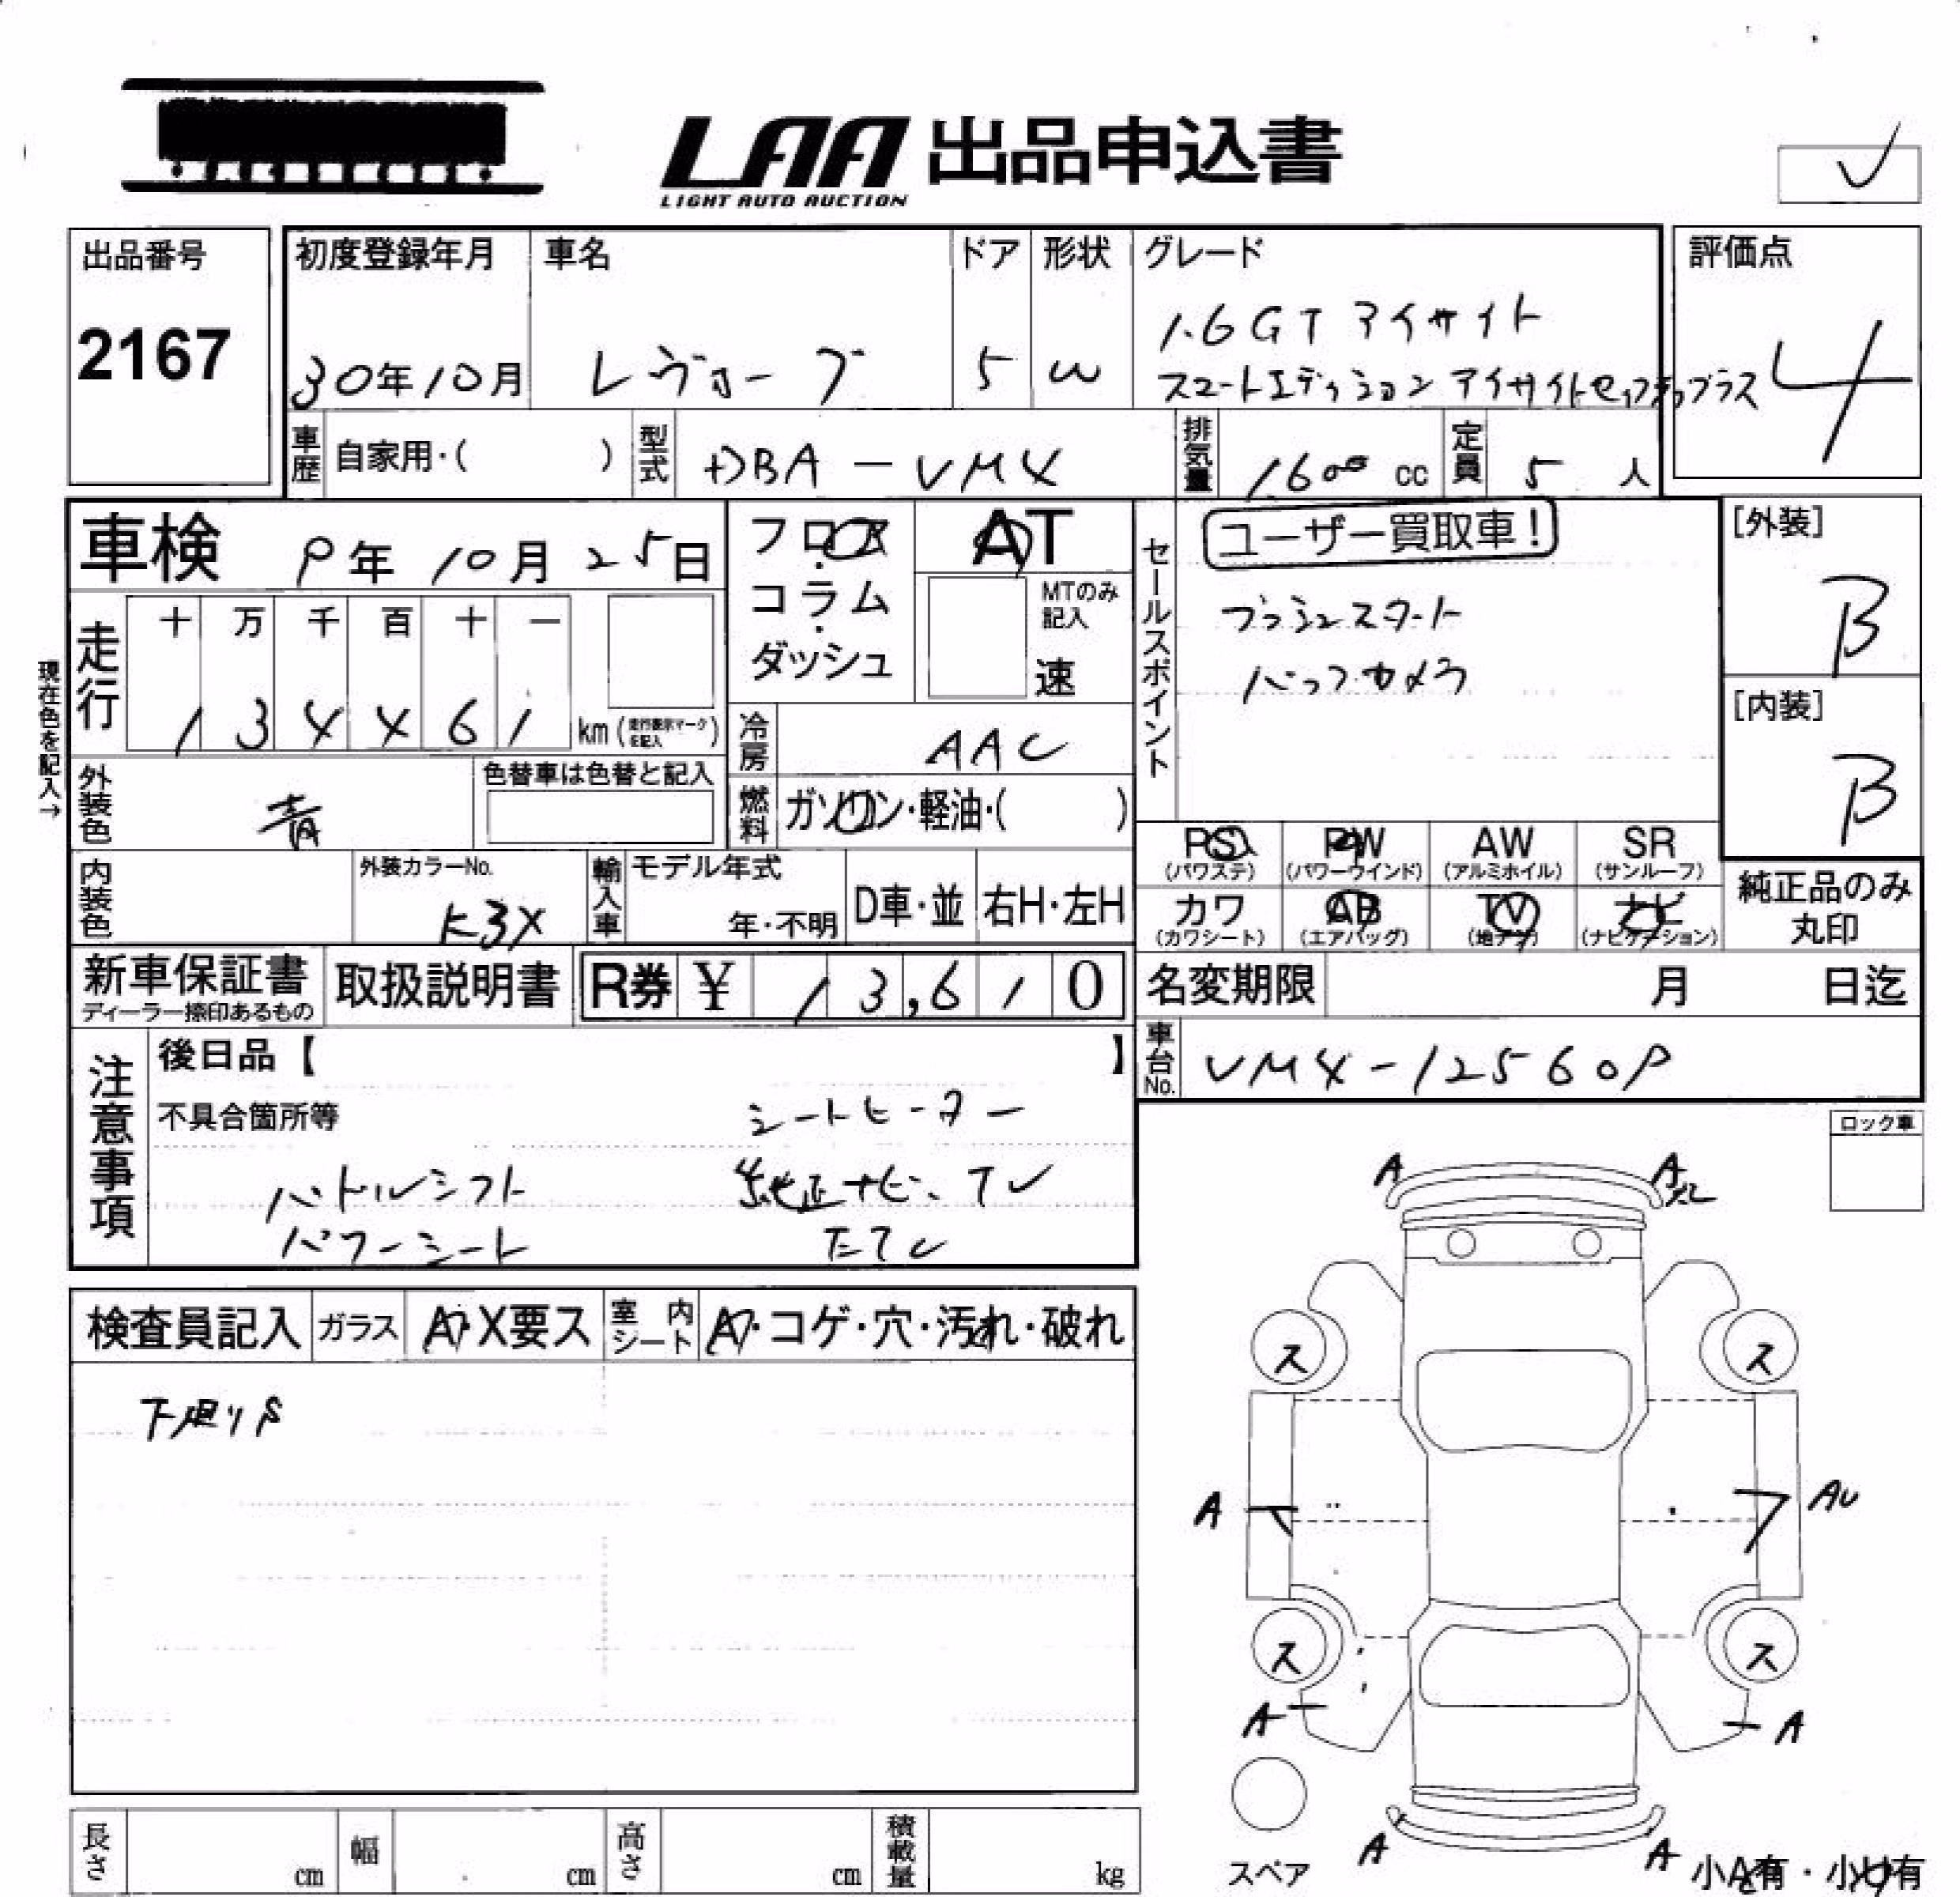 LAA 出品申込書
LIGHT AUTO AUCTION
出品番号
2167
初度登録年月
30年10月
車名
レヴォーグ
ドア
5
形状
W
グレード
1.6GT アイサイト
スマートエディション アイサイトセイフティプラス
評価点
4
車歴 自家用・( )
型式 DBA-VM4
排気量 1600 cc
定員 5 人
車検 9年 10月 25日
フロア・コラム・ダッシュ
AT
MTのみ記入
速
セールスポイント
ユーザー買取車!
プッシュスタート
バックカメラ
[外装]
B
[内装]
B
現在色を記入→
走行
十 万 千 百 十 一
1 3 4 4 6 1 km (走行表示マークを記入)
冷房 AAC
外装色 青
色替車は色替と記入
燃料 ガソリン・軽油・( )
内装色
外装カラーNo.
K3X
輸入車
モデル年式
年・不明
D車・並
右H・左H
PS (パワステ)
PW (パワーウインド)
AW (アルミホイル)
SR (サンルーフ)
カワ (カワシート)
AB (エアバッグ)
TV (地デジ)
ナビ (ナビゲーション)
純正品のみ丸印
新車保証書
ディーラー捺印あるもの
取扱説明書
R券 ¥ 13,610
名変期限 月 日迄
車台No. VM4-125609
注意事項
後日品【 】
不具合箇所等
シートヒーター
パドルシフト 純正ナビ、TV
パワーシート
ロック車
検査員記入
ガラス A・X要ス
室内シート A・コゲ・穴・汚れ・破れ
下廻りS
A
A
ス
ス
A
AU
ス
ス
A
A
スペア
A
A
小A有・小U有
長さ cm
幅 cm
高さ cm
積載量 kg